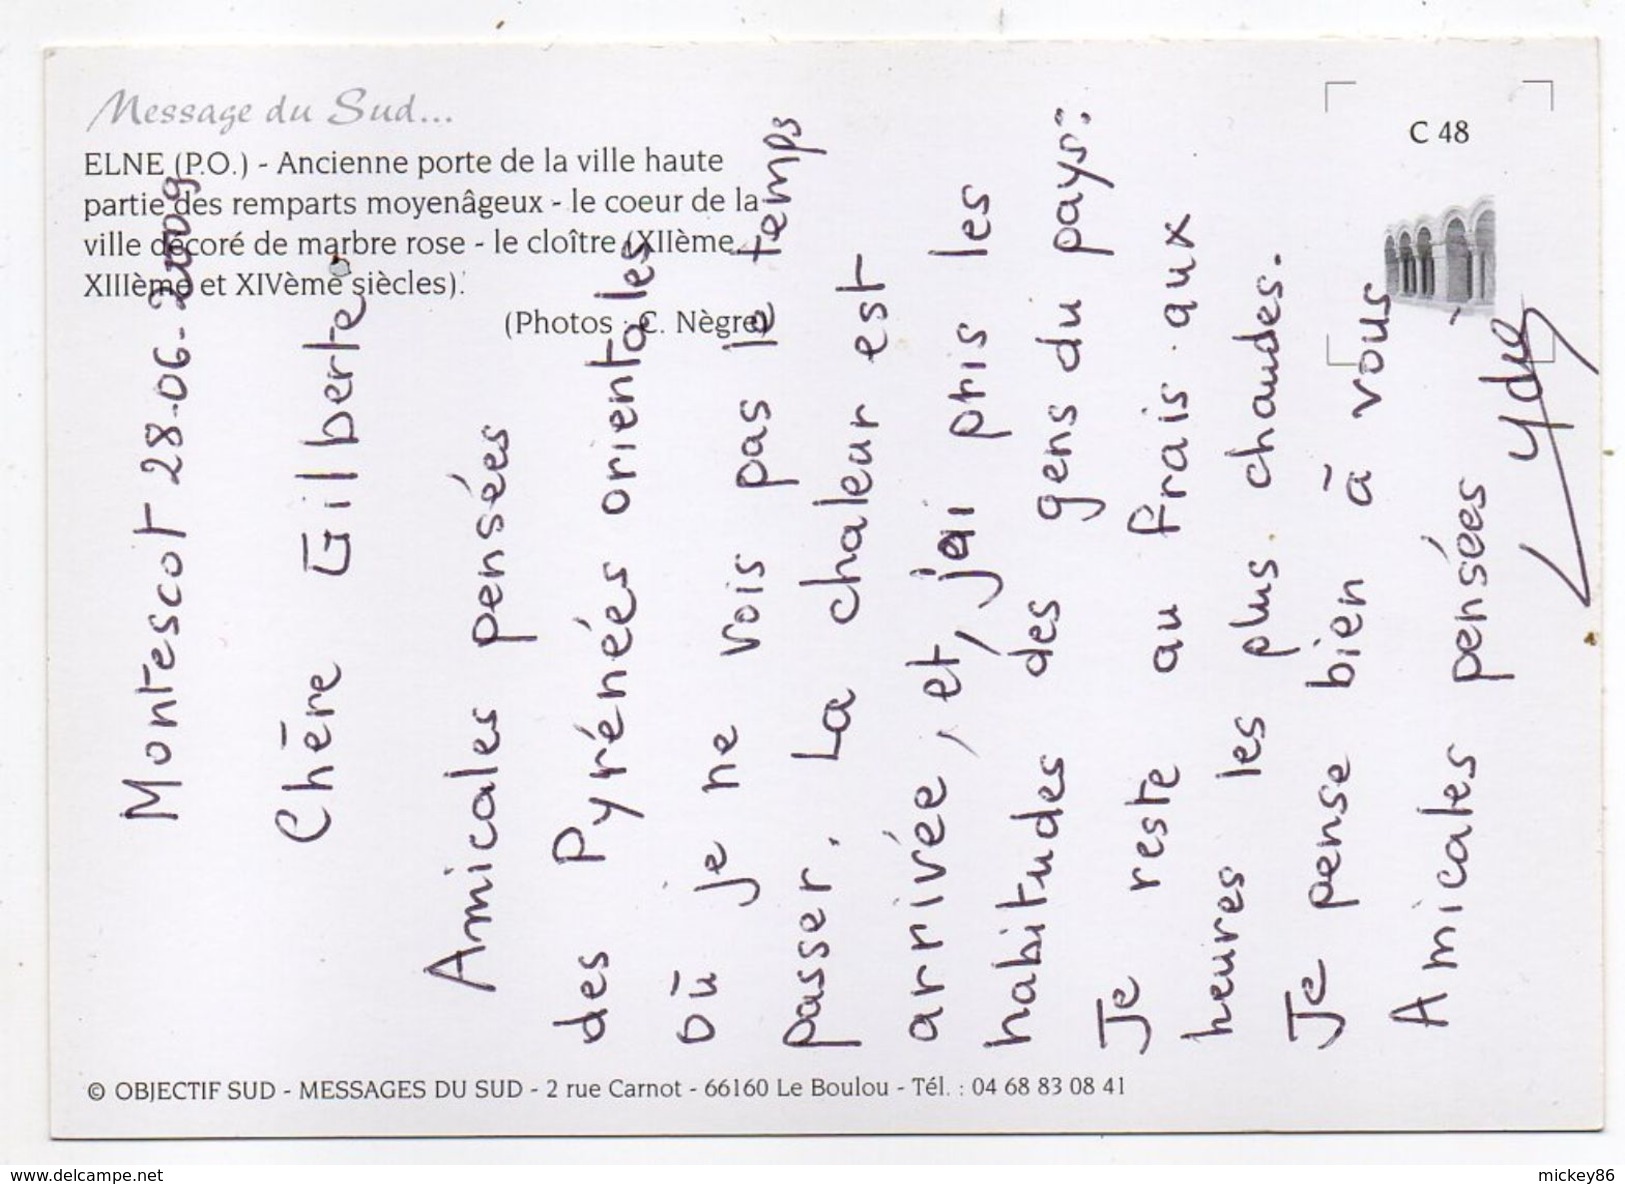 Message du Sud...
ELNE (P.O.) - Ancienne porte de la ville haute
partie des remparts moyenâgeux - le coeur de la
ville décoré de marbre rose - le cloître (XIIème,
XIIIème et XIVème siècles).
(Photos : C. Nègre)
C 48
Montescot 28-06-2009
Chère Gilberte
Amicales pensées
des Pyrénées orientales
où je ne vois pas le temps
passer. La chaleur est
arrivée, et, j'ai pris les
habitudes des gens du pays:
Je reste au frais aux
heures les plus chaudes.
Je pense bien à vous
Amicales pensées
© OBJECTIF SUD - MESSAGES DU SUD - 2 rue Carnot - 66160 Le Boulou - Tél. : 04 68 83 08 41
www.delcampe.net
mickey86